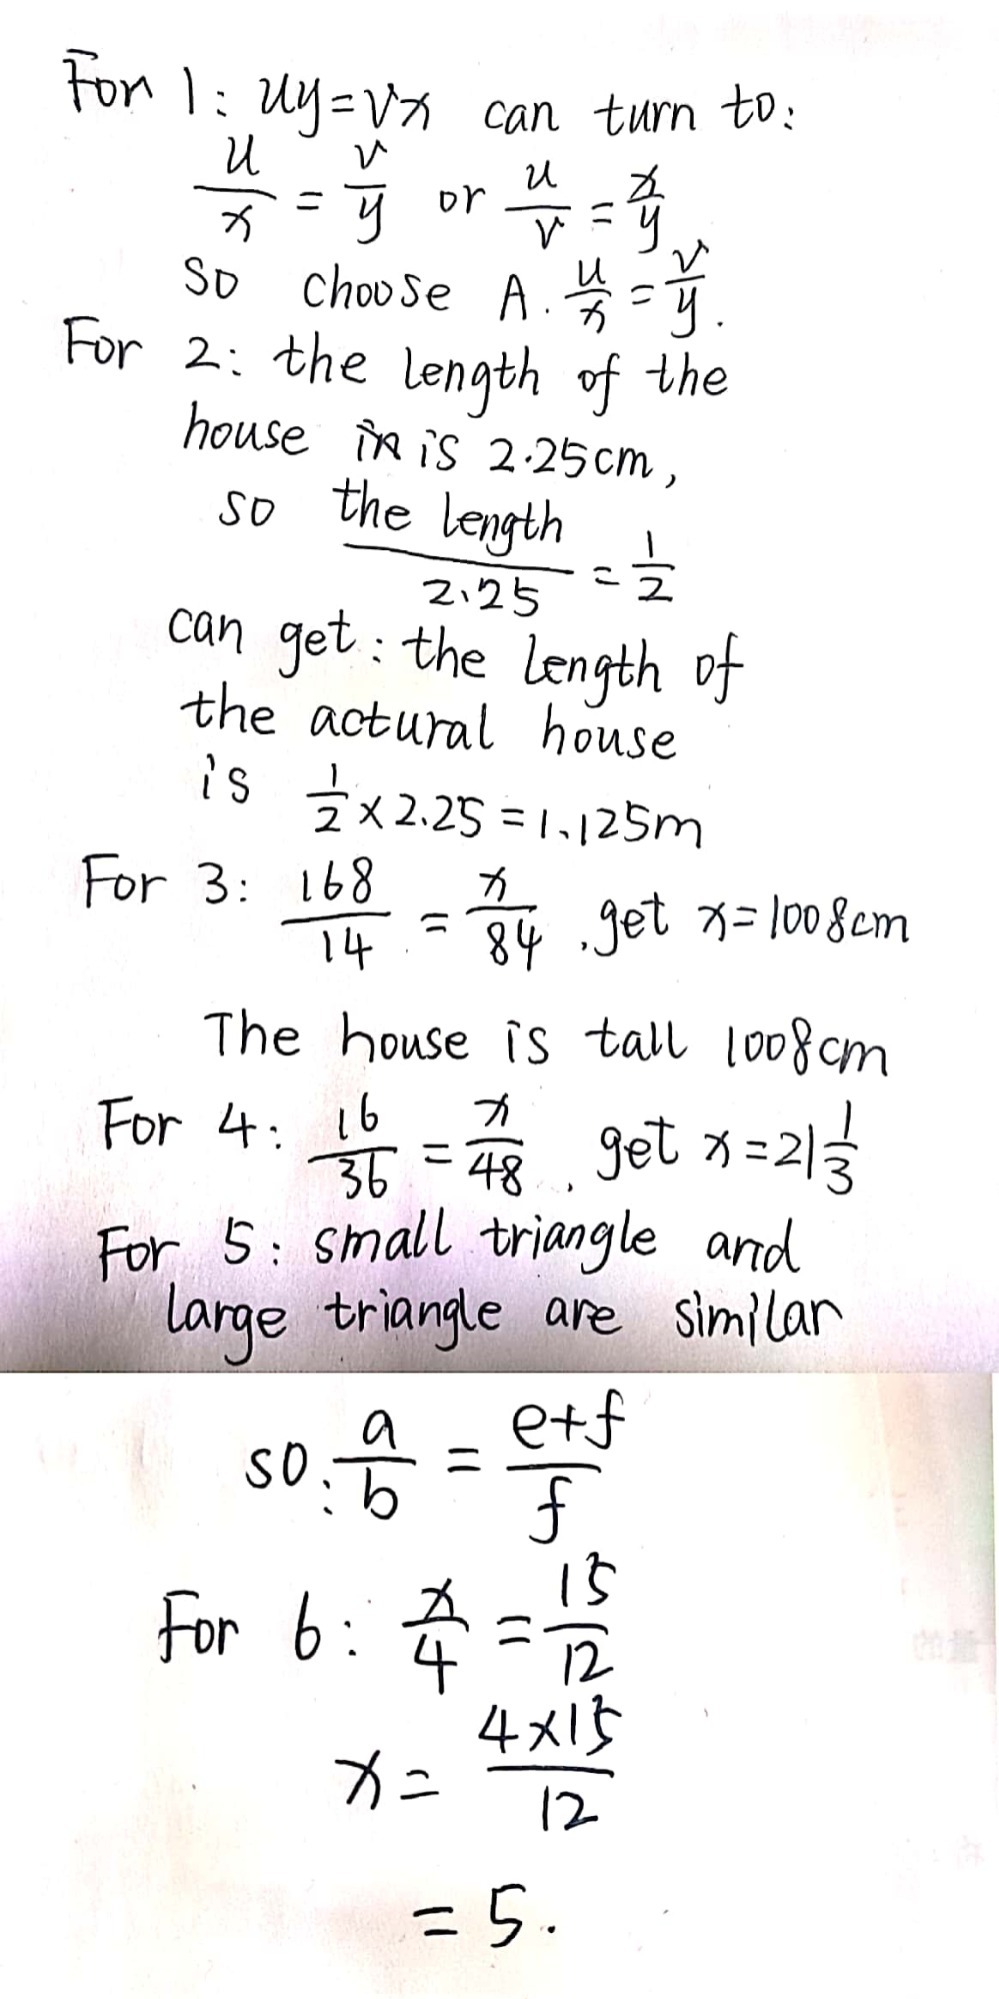 For 1: uy=vx can turn to:
u/x = v/y or u/v = x/y
so choose A. u/x = v/y.
For 2: the length of the
house is 2.25cm,
so the length/2.25 = 1/2
can get: the length of
the actural house
is 1/2 × 2.25 = 1.125m
For 3: 168/14 = x/84 .get x=1008cm
The house is tall 1008cm
For 4: 16/36 = x/48 . get x=21 1/3
For 5: small triangle and
large triangle are similar
so: a/b = e+f/f
For 6: x/4 = 15/12
x= 4×15/12
= 5.